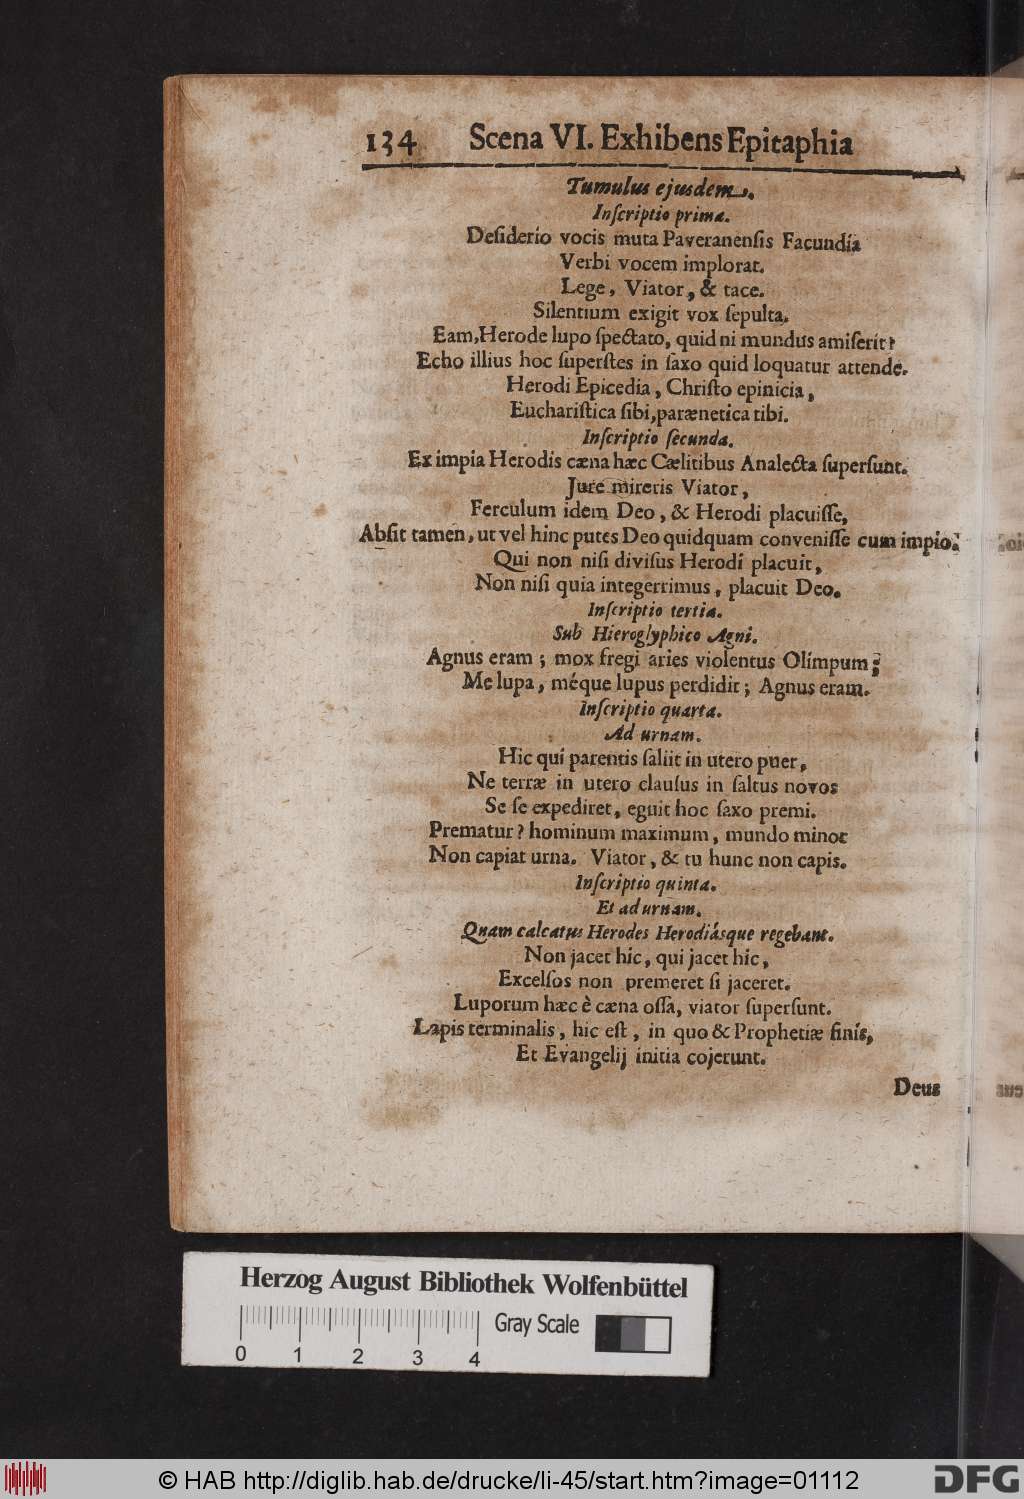 134 Scena VI. Exhibens Epitaphia
Tumulus ejusdem.
Inſcriptio prima.
Deſiderio vocis muta Paveranenſis Facundia
Verbi vocem implorat.
Lege, Viator, & tace.
Silentium exigit vox ſepulta.
Eam, Herode lupo ſpectato, quid ni mundus amiſerit?
Echo illius hoc ſuperſtes in ſaxo quid loquatur attende.
Herodi Epicedia, Chriſto epinicia,
Euchariſtica ſibi, parænetica tibi.
Inſcriptio ſecunda.
Ex impia Herodis cæna hæc Cælitibus Analecta ſuperſunt.
Jure mireris Viator,
Ferculum idem Deo, & Herodi placuiſſe,
Abſit tamen, ut vel hinc putes Deo quidquam conveniſſe cum impio.
Qui non niſi diviſus Herodi placuit,
Non niſi quia integerrimus, placuit Deo.
Inſcriptio tertia.
Sub Hieroglyphico Agni.
Agnus eram; mox fregi aries violentus Olimpum;
Me lupa, méque lupus perdidit; Agnus eram.
Inſcriptio quarta.
Ad urnam.
Hic qui parentis ſaliit in utero puer,
Ne terræ in utero clauſus in ſaltus novos
Se ſe expediret, eguit hoc ſaxo premi.
Prematur? hominum maximum, mundo minor
Non capiat urna. Viator, & tu hunc non capis.
Inſcriptio quinta.
Et ad urnam.
Quam calcatus Herodes Herodiásque regebant.
Non jacet hic, qui jacet hic,
Excelſos non premeret ſi jaceret.
Luporum hæc è cæna oſſa, viator ſuperſunt.
Lapis terminalis, hic eſt, in quo & Prophetiæ finis,
Et Evangelij initia cojerunt.
Deus
Herzog August Bibliothek Wolfenbüttel
Gray Scale
0 1 2 3 4
© HAB http://diglib.hab.de/drucke/li-45/start.htm?image=01112
DFG